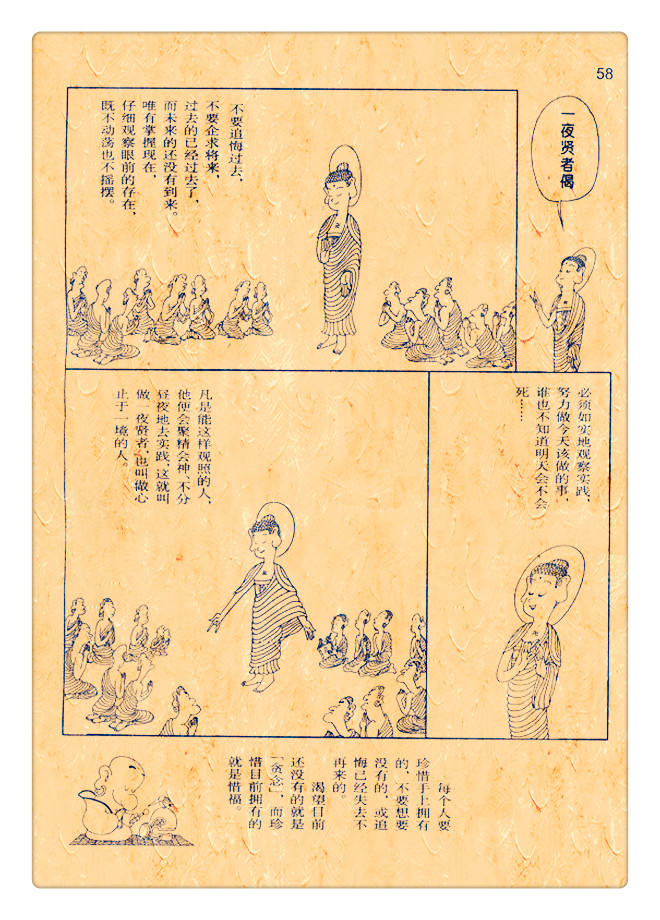 58
一夜贤者偈
不要追悔过去，
不要企求将来，
过去的已经过去了，
而未来的还没有到来。
唯有掌握现在，
仔细观察眼前的存在，
既不动荡也不摇摆。
必须如实地观察实践，
努力做今天该做的事，
谁也不知道明天会不会
死……
凡是能这样观照的人，
他便会聚精会神、不分
昼夜地去实践，这就叫
做一夜贤者，也叫做心
止于一境的人。
每个人要
珍惜手上拥有
的，不要想要
没有的，或追
悔已经失去不
再来的。
渴望目前
还没有的就是
「贪念」，而珍
惜目前拥有的
就是惜福。